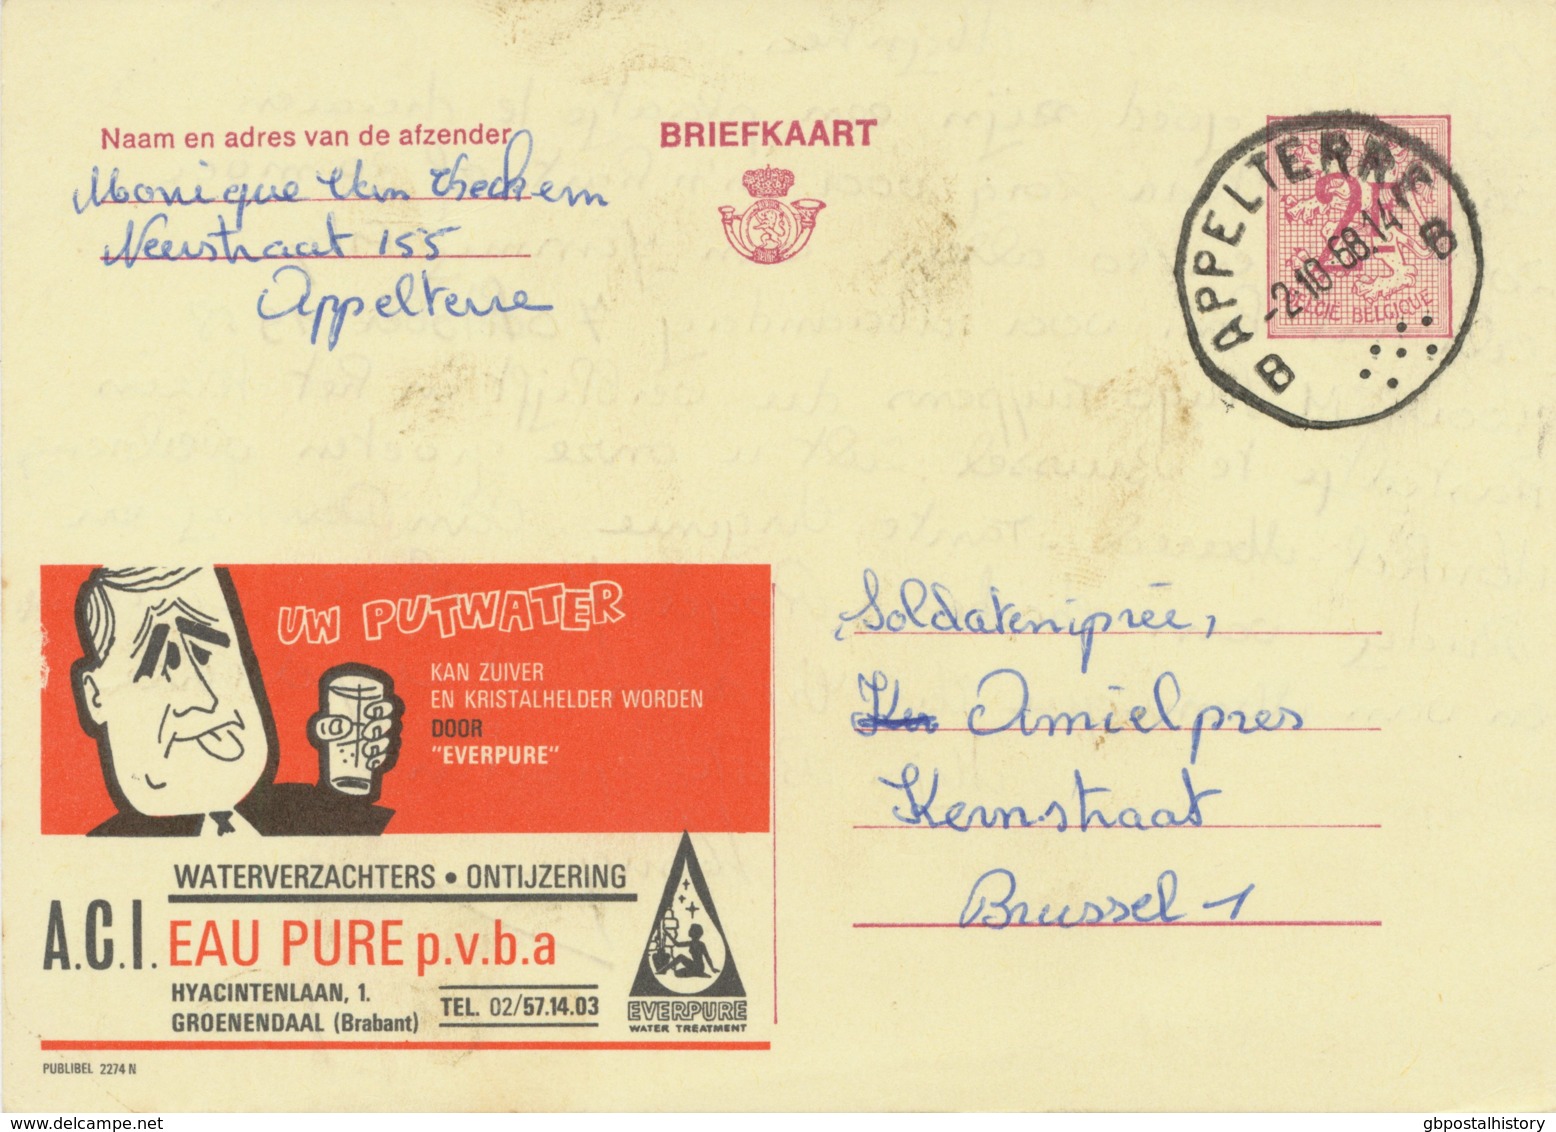 Naam en adres van de afzender
Monique Van
Neerstraat 155
Appelterre
BRIEFKAART
2F
BELGIE BELGIQUE
B APPELTERRE B
-2.10.68.14
UW PUTWATER
KAN ZUIVER
EN KRISTALHELDER WORDEN
DOOR
"EVERPURE"
WATERVERZACHTERS • ONTIJZERING
A.C.I. EAU PURE p.v.b.a
HYACINTENLAAN, 1.
GROENENDAAL (Brabant)
TEL. 02/57.14.03
EVERPURE
WATER TREATMENT
PUBLIBEL 2274 N
Soldateniprée,
Amielpres
Kernstraat
Brussel 1
gbpostalhistory